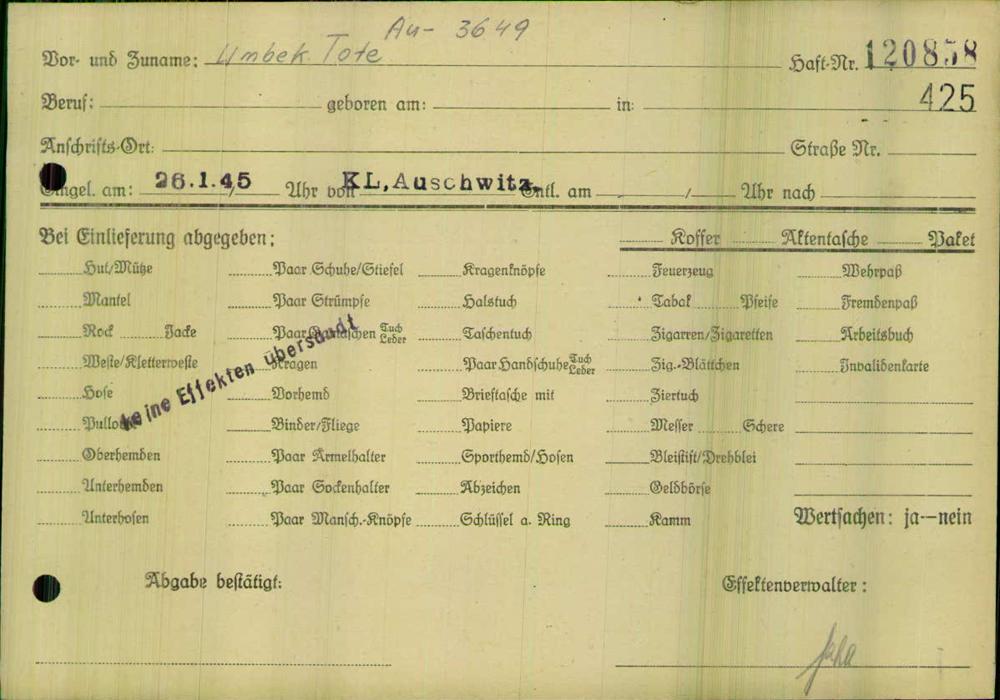 Au- 3649
Vor- und Zuname: Umbek. Tote Haft-Nr. 120858
425
Beruf: geboren am: in:
Anschrifts-Ort: Straße Nr.
Eingel. am: 26.1.45 Uhr von KL, Auschwitz. Entl. am / Uhr nach
Bei Einlieferung abgegeben: Koffer Aktentasche Paket
Hut/Mütze Paar Schuhe/Stiefel Kragenknöpfe Feuerzeug Wehrpaß
Mantel Paar Strümpfe Halstuch Tabak Pfeife Fremdenpaß
Rock Jacke Paar Gamaschen Tuch Leder Taschentuch Zigarren/Zigaretten Arbeitsbuch
Weste/Kletterweste Kragen Paar Handschuhe Tuch Leder Zig.-Blättchen Invalidenkarte
Hose Vorhemd Brieftasche mit Ziertuch
Pullover Binder/Fliege Papiere Messer Schere
Oberhemden Paar Ärmelhalter Sporthemd/Hosen Bleistift/Drehblei
Unterhemden Paar Sockenhalter Abzeichen Geldbörse
Unterhosen Paar Mansch.-Knöpfe Schlüssel a. Ring Kamm Wertsachen: ja—nein
keine Effekten übersandt
Abgabe bestätigt: Effektenverwalter: